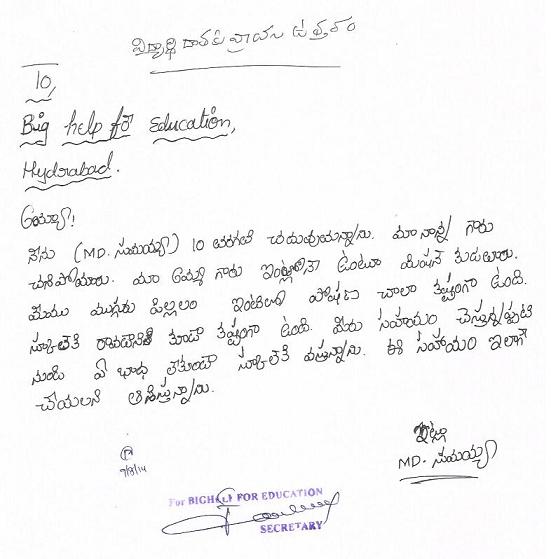 విద్యార్థి దాతకు వ్రాయు ఉత్తరం
10,
Big help for Education,
Hyderabad.
అయ్యా!
నేను (MD. సుమయ్యా) 10 తరగతి చదువుచున్నాను. మా నాన్న గారు
చనిపోయారు. మా అమ్మ గారు ఇంట్లోనే ఉంటూ మిషన్ కుడుతారు.
మేము ముగ్గురు పిల్లలం ఇంటిలో పోషణ చాలా కష్టంగా ఉంది.
స్కూల్‌కి రావడానికి కూడా కష్టంగా ఉంది. మీరు సహాయం చేస్తున్నప్పటి
నుండి ఏ బాధ లేకుండా స్కూల్‌కి వస్తున్నాను. ఈ సహాయం ఇలాగే
చేయాలని ఆశిస్తున్నాను.
ఇట్లు
MD. సుమయ్యా
9/8/14
For BIGHELP FOR EDUCATION
SECRETARY